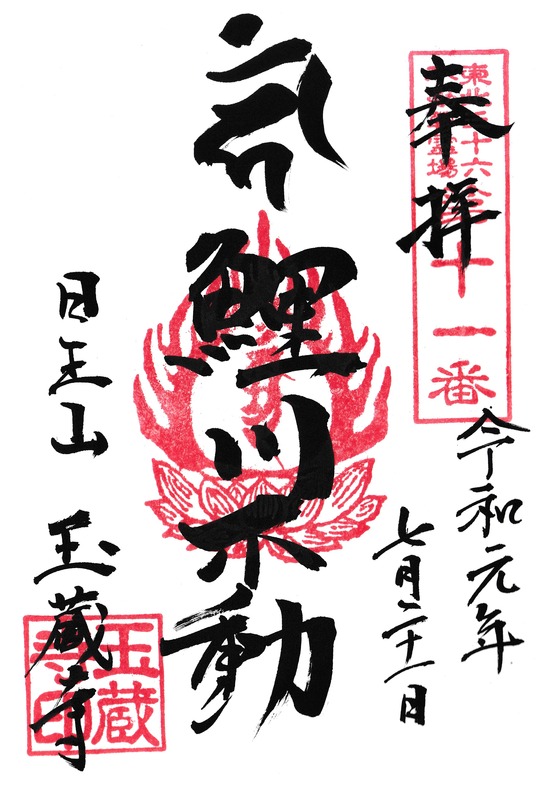 奉拝
東北三十六
霊場
十一番
令和元年
七月二十一日
鯉川不動
日王山
玉蔵寺
玉蔵
寺印